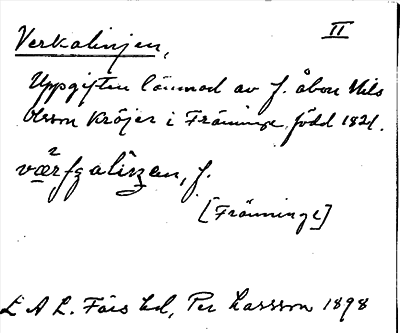 II
Verkalinjen,
Uppgiften lämnad av f. åbon Nils
Olsson Kröjer i Fränninge, född 1821.
[Fränninge]
L A L. Färs hd, Per Larsson 1898